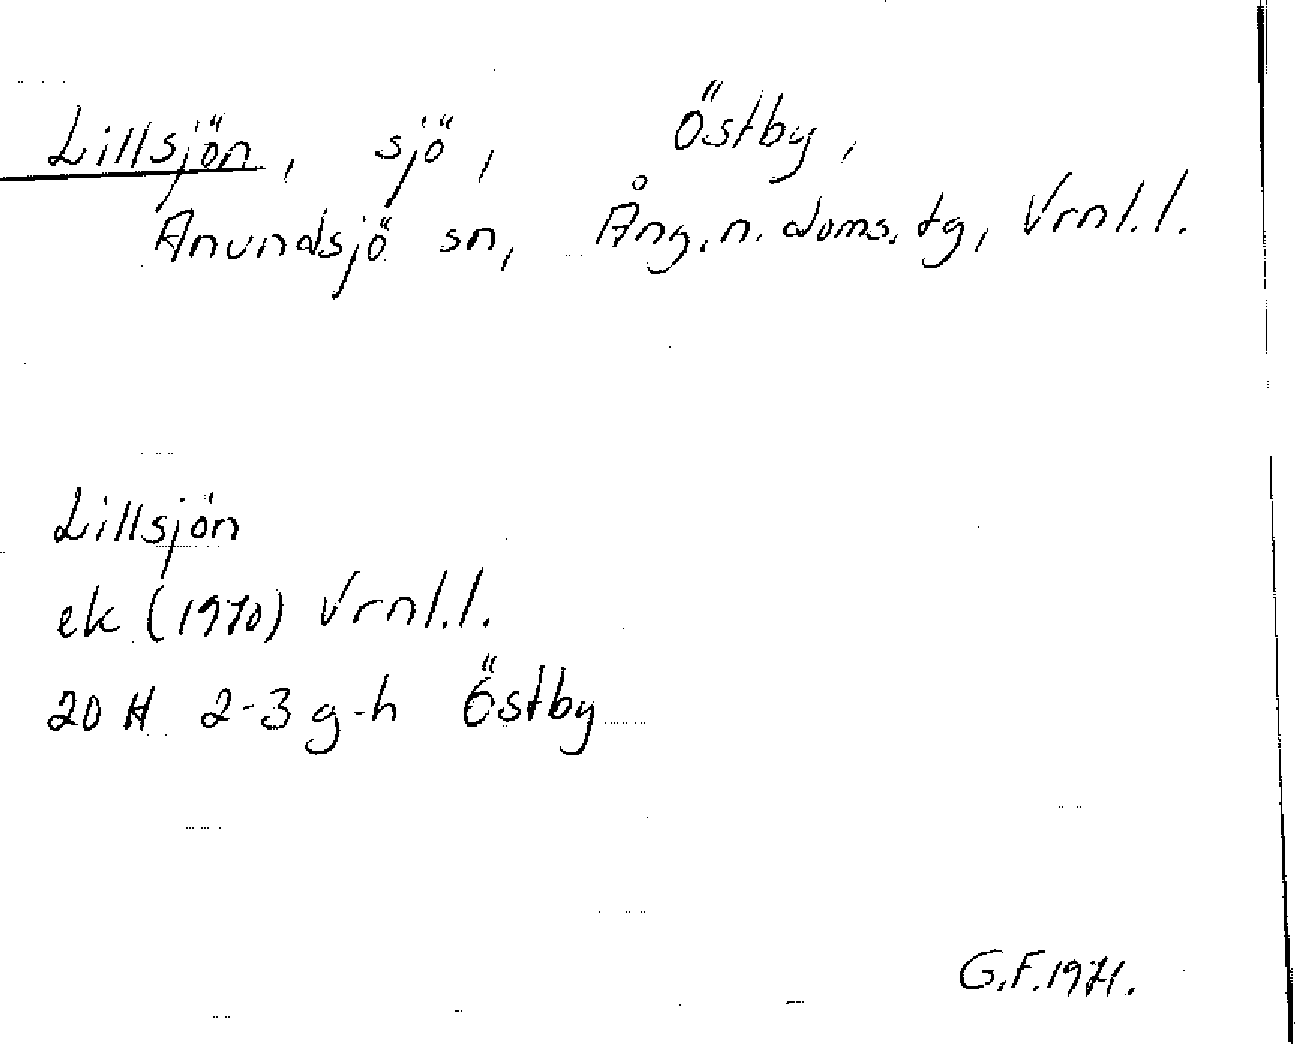 Lillsjön, sjö, Östby,
Anundsjö sn, Ång.n.doms.tg, Vrnl.l.
Lillsjön
ek (1970) Vrnl.l.
20 H 2-3 g-h Östby
G.F.1971.